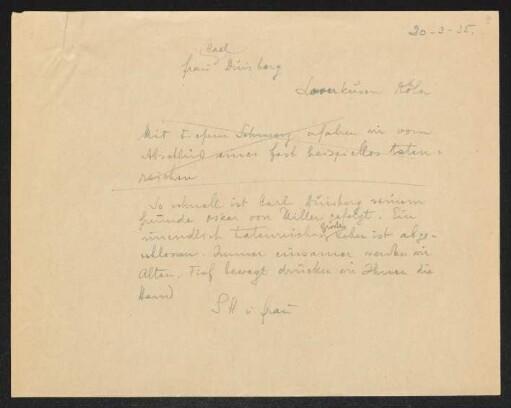 20-3-35.
Carl
frau Duisberg
Leverkusen Köln
Mit tiefem Schmerz erfahren wir vom
Abschluß einer fast beispiellos taten-
reichen
So schnell ist Carl Duisberg seinem
Freunde Oskar von Miller gefolgt. Ein
unendlich tatenreiches großes Leben ist abge-
schlossen. Immer einsamer werden wir
Alten. Tief bewegt drücken wir Ihnen die
Hand
SH u frau